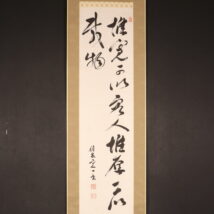 惟寛可以容人惟厚可以
載物